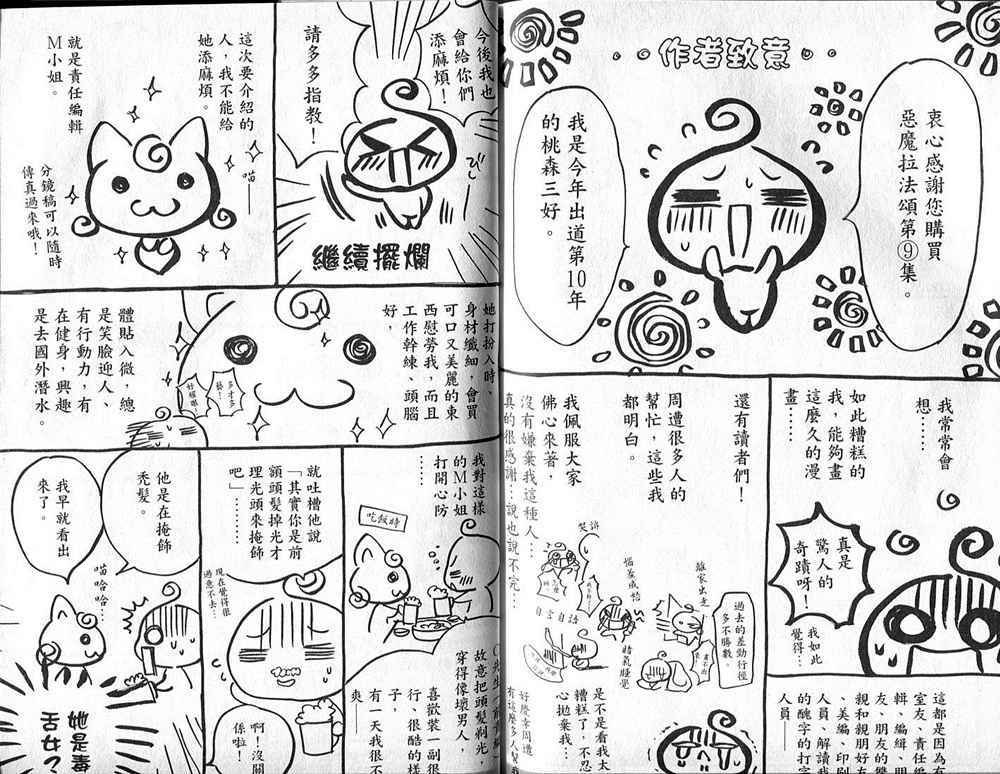 作者致意
衷心感謝您購買
惡魔拉法頌第⑨集。
我是今年出道第10年
的桃森三好。
我常常會
想……
真是
驚人的
奇蹟呀！
我如此
覺得…
如此糟糕的
我，能夠畫
這麼久的漫
畫……
還有讀者們！
周遭很多人的
幫忙，這些我
都明白。
我佩服大家
佛心來著，
沒有嫌棄我這種人…
真的很感謝…說也說不完…
過去的差勁行徑
多不勝數。
離家出走
惱羞成怒
賭氣睡覺
自言自語
是不是看我太
糟糕了，不忍
心拋棄我…
好慶幸周遭
有這麼多人幫我
這都是因為有
室友、責任編
輯、編緝、朋
友、朋友的雙
親和親朋好友
、美編、印刷
人員、解讀我
的醜字的打字
人員——
今後我也
會給你們
添麻煩！
請多多指教！
繼續擺爛
這次要介紹的
人，我不能給
她添麻煩。
喵——
就是責任編輯
M小姐。
分鏡稿可以隨時
傳真過來哦！
她打扮入時、
身材纖細，會買
可口又美麗的東
西慰勞我，而且
工作幹練、頭腦
好，
多才多
藝！
好耀眼
體貼入微，總
是笑臉迎人、
有行動力，有
在健身，興趣
是去國外潛水。
我對這樣
的M小姐
打開心防
……
吃飯時
故意把頭髮剃光，
穿得像壞男人，
喜歡裝一副很
行、很酷的樣
子，
有一天我很不
爽——
就吐槽他說
「其實你是前
額頭髮掉光才
理光頭來掩飾
吧」………
現在覺得很
過意不去…
啊！沒關
係啦！
他是在掩飾
禿髮。
我早就看出
來了。
喵哈哈…
她是毒
舌女？